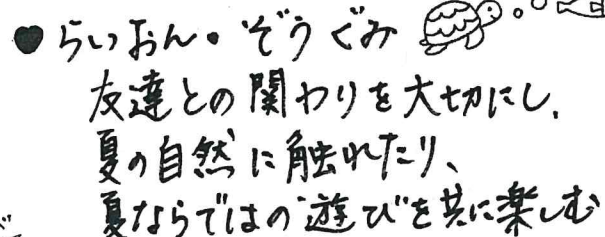 ♥らいおん・ぞうぐみ
友達との関わりを大切にし、
夏の自然に触れたり、
夏ならではの遊びを共に楽しむ